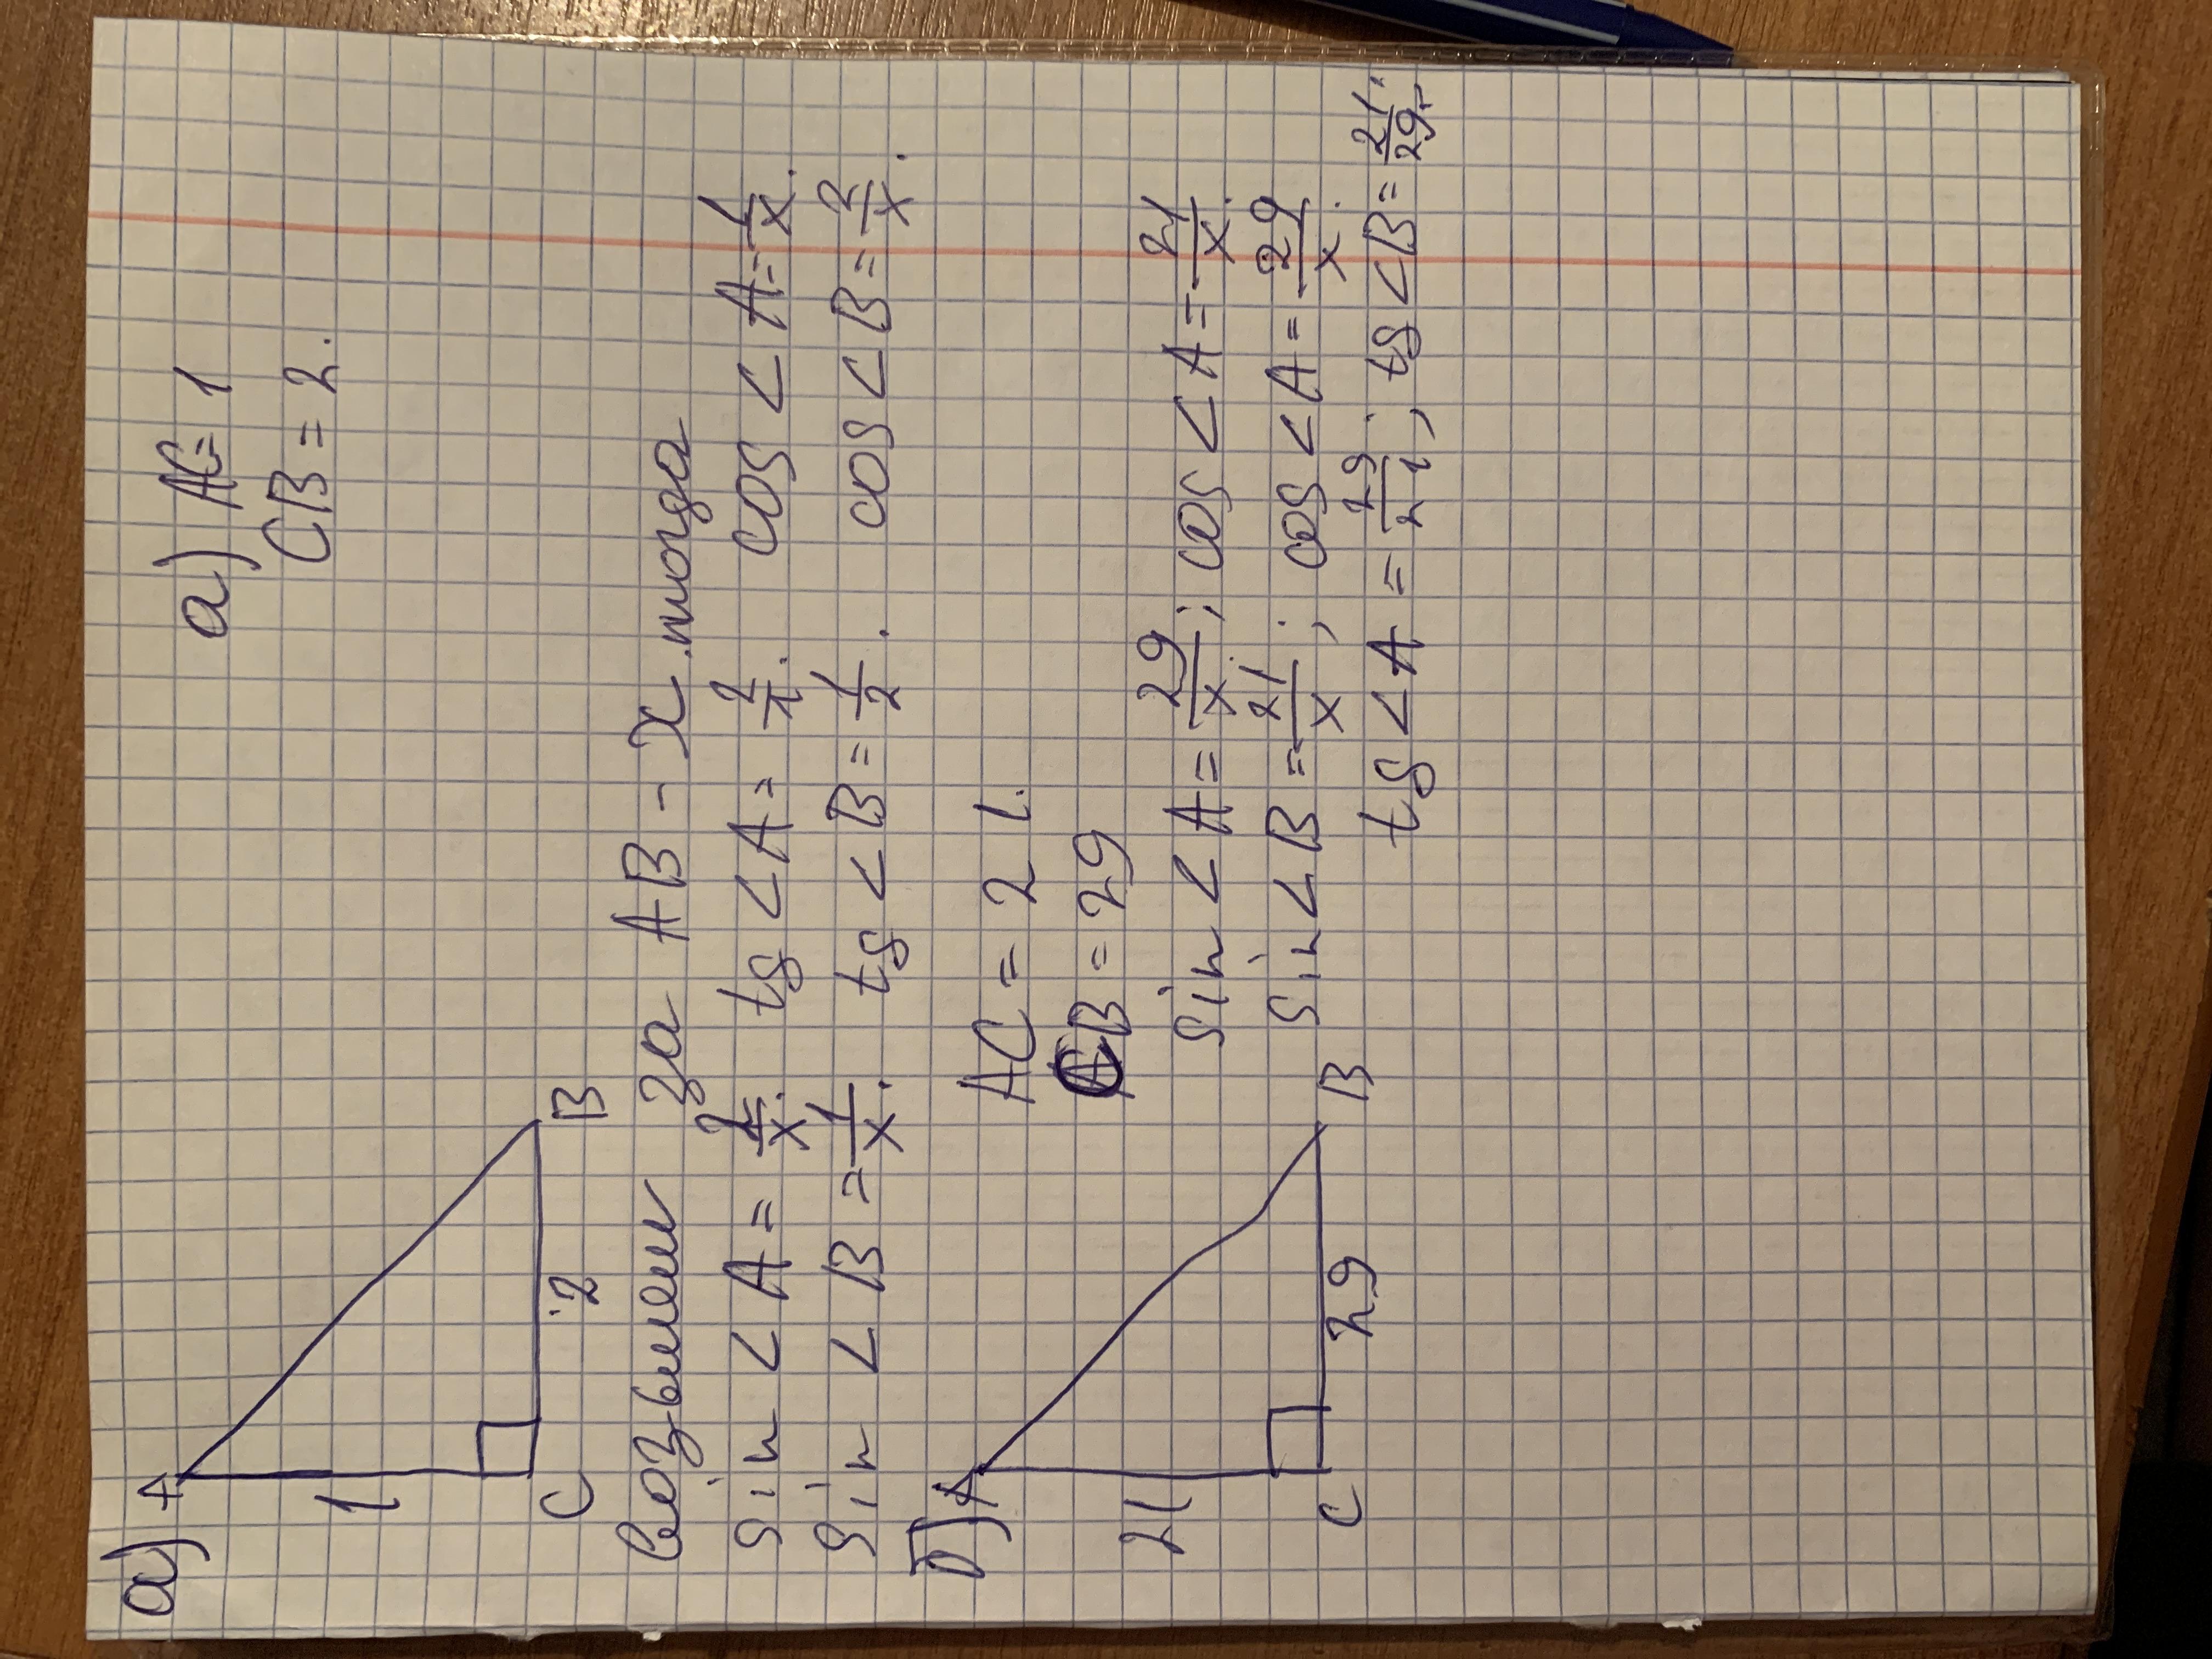 а) A
1
C 2 B
а) AC=1
CB = 2.
Возьмем за AB – x. тогда
Sin < A = 2/x. tg < A = 2/1. cos < A = 1/x.
Sin < B = 1/x. tg < B = 1/2. cos < B = 2/x.
Б) A
21
C 29 B
AC = 21.
CB = 29
Sin < A = 29/x; cos < A = 21/x.
Sin < B = 21/x; cos < A = 29/x.
tg < A = 29/21; tg < B = 21/29.